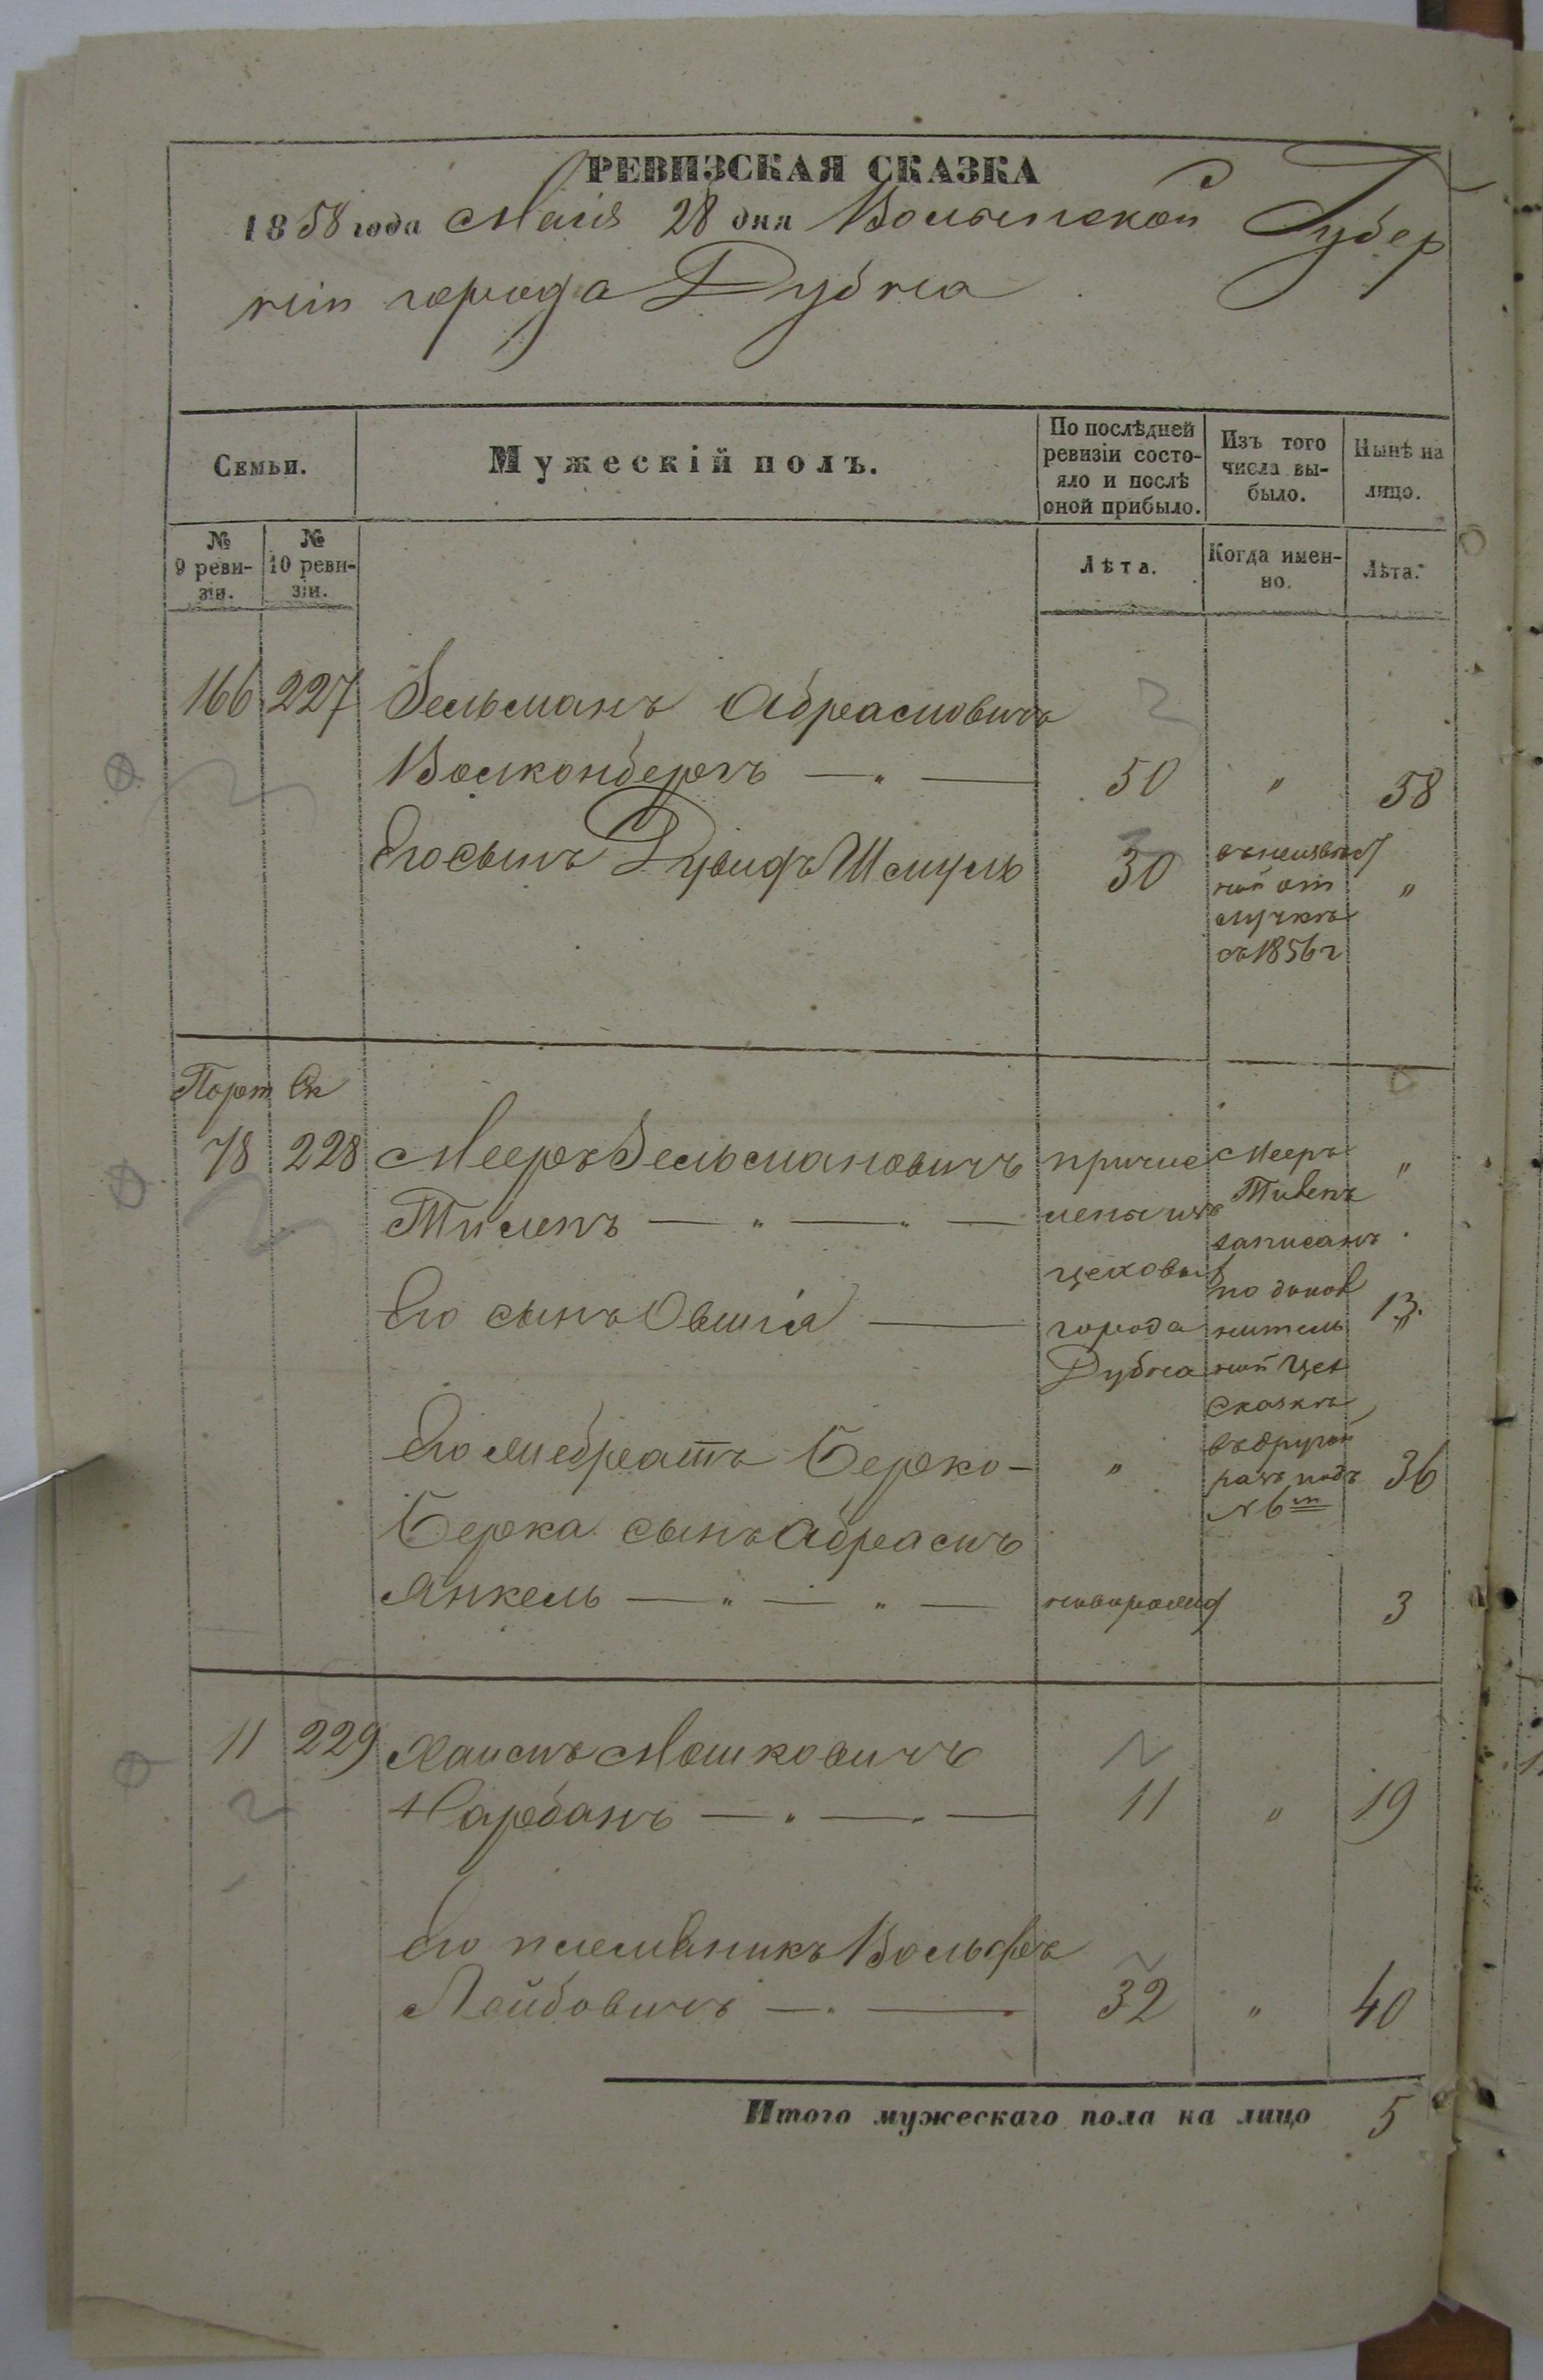 РЕВИЗСКАЯ СКАЗКА
1858 года Маія 28 дня Волынской Губер
ніи города Дубна
Семьи.
Мужескій полъ.
По послѣдней ревизіи состо-
яло и послѣ оной прибыло.
Изъ того числа вы-
было.
Нынѣ на лицо.
№ 9 реви-
зіи.
№ 10 реви-
зіи.
Лѣта.
Когда имен-
но.
Лѣта.
166 227 Зельманъ Абрамовичъ
Волконбергъ 50 " 58
Его сынъ Дувидъ Шмуль 30 "
въ неизвѣст
ной от
лучкѣ
съ 1856 г
Порт Ск
78 228 Мееръ Зельмановичъ "
Его сынъ Овшія 13
причис
цеховы
города
Дубна
Мееръ
записанъ
по допол
нитель
ной цех
сказкѣ
въ другой
разъ подъ
№ 6
Его братъ Берко " 36
Берка сынъ Абрамъ
Янкель новорожд 3
11 229 Хаимъ Мошковичъ
Нарбанъ 11 " 19
Его племяникъ Вольфъ
Лейбовичъ 32 " 40
Итого мужескаго пола на лицо 5